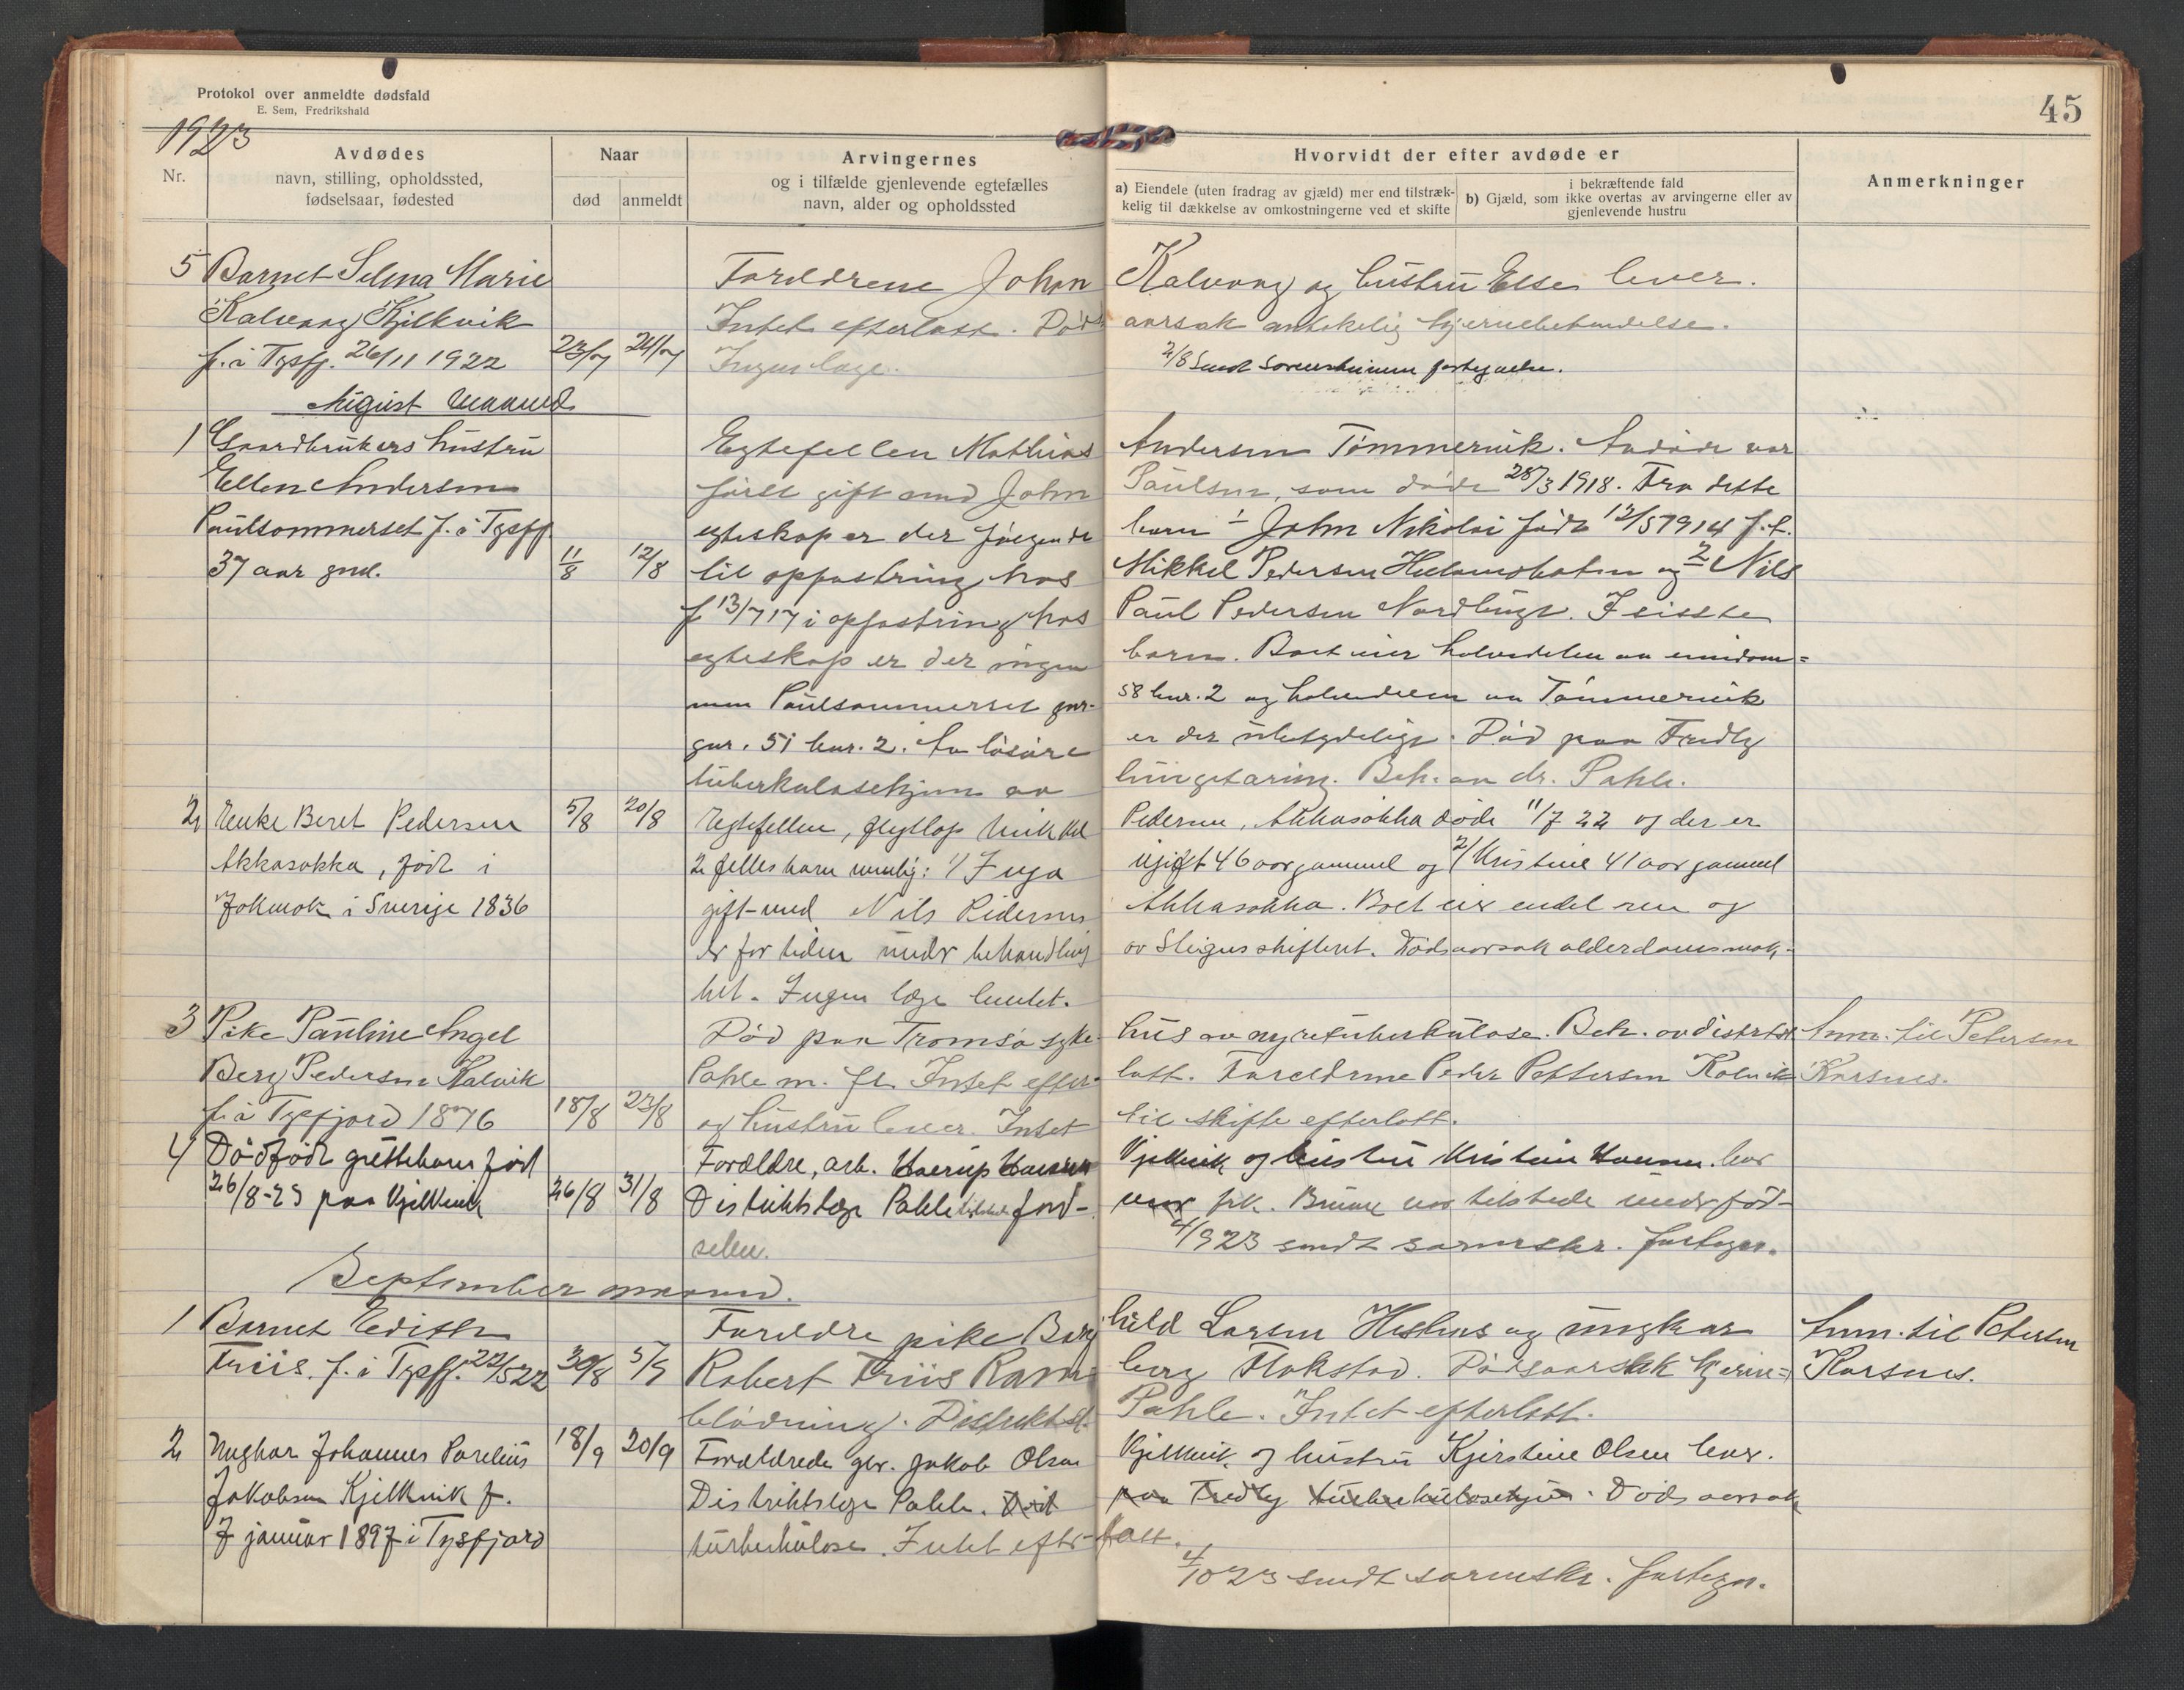 Protokol over anmeldte dødsfald
E. Sem, Fredrikshald
45
1923
Nr.
Avdødes
navn, stilling, opholdssted,
fødselsaar, fødested
Naar
død anmeldt
Arvingernes
og i tilfælde gjenlevende egtefælles
navn, alder og opholdssted
Hvorvidt der efter avdøde er
a) Eiendele (uten fradrag av gjæld) mer end tilstræk-
kelig til dækkelse av omkostningerne ved et skifte
i bekræftende fald
b) Gjæld, som ikke overtas av arvingerne eller av
gjenlevende hustru
Anmerkninger
5 Barnet Selma Marie Foreldrene John Kalvaag og hustru Else lever.
Kalvaag Kjelkvik Intet efterlatt. Døds aarsak antakelig hjernebetendelse.
f. i Tysfj. 26/11 1922 23/7 24/7 Ingen læge. 2/8 Sendt Sorenskriveren fortegnelse.
August maaned
1 Gaardbrukers hustru Egtefellen Mathias Andersen Tømmervik. Avdøde var
Ellen Andersen først gift med John Paulsen, som døde 28/3 1918. Fra dette
Paulsommerset f. i Tysfj. egteskap er der følgende barn 1 John Nikolai født 12/5 1914 f.t.
37 aar gml. 11/8 12/8 til oppfostring hos Mikkel Pedersen og 2 Nils
f 13/7 17 i opfostring hos Paul Pedersen Nordbugt. I siste
egteskap er der ingen barn. Boet eier halvdelen av eiendom=
men Paulsommerset gnr. 58 bnr. 2 og halvdelen av Tømmervik
gnr. 51 bnr. 2. Av løsøre er der ubetydelig. Død paa Fredly
tuberkulosehjem av lungetæring. Beh. av dr. Pahle.
2 Enke Beret Pedersen 5/8 20/8 Egtefellen, flytlap Mikkel Pedersen, Akkasokka døde 11/7 22 og der er
Akkasokka, født i 2 felles barn nemlig: 1/ Inga ugift 46 aar gammel og 2/ Kristine 41 aar gammel
Jokmok i Sverige 1836 gift med Nils Pedersen Akkasokka. Boet eier endel ren og
er for tiden under behandling av Steigen skifteret. Dødsaarsak alderdomssvak-
het. Ingen læge hentet.
3 Pike Pauline Angel Død paa Tromsø syke- hus av nyretuberkulose. Beh. av distrktsl. Anm. til Petersen
Berg Pedersen Kalvik Pahle m. fl. Intet efter- latt. Foreldrene Peder Pettersen Kalvik Korsnes.
f. i Tysfjord 1876 18/8 23/8 og hustru lever. Intet til skifte efterlatt.
4 Dødfødt guttebarn født Forældre, arb. Kjelkvik og hustru Kristine Hansen. lever
26/8-23 paa Kjelkvik 26/8 31/8 Distriktslæge Pahle fød- frk. var tilstede under fød-
selen. 4/9 23 sendt sorenskr. fortegn.
September maaned.
1 Barnet Edith Foreldre pike Borg hild Larsen Heshus og ungkar Anm. til Petersen
Friis. f. i Tysfj. 22/5 22 30/8 5/9 Robert Friis Rams berg Flakstad. Dødsaarsak hjerne= Korsnes.
blødning. Distriktsl. Pahle. Intet efterlatt.
2 Ungkar Johannes Parelius 18/9 20/9 Forældrede gbr. Jakob Olsen Kjelkvik og hustru Kjerstine Olsen lever.
Jakobsen Kjelkvik f. Distriktslæge Pahle. Død paa Fredly tuberkulosehjem. Dødsaarsak
7 januar 1897 i Tysfjord tuberkulose. Intet efter- latt.
4/10 23 sendt sorenskr. fortegn.